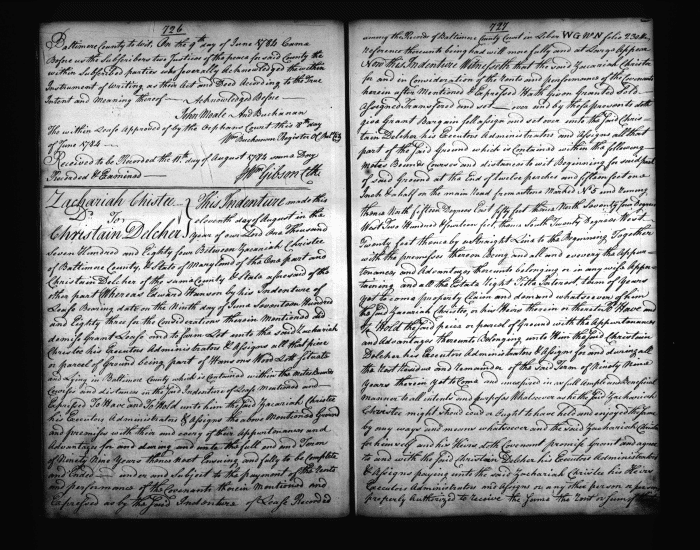 726
Baltimore County to wit, On the 9th day of June 1784 Came
Before us the Subscribers two Justices of the peace for said County the
within Subscribed parties who severally Acknowledged the within
Instrument of Writing as their Act and Deed According to the True
Intent and Meaning thereof Acknowledged Before
John Moale And Buchanan
The within Lease Approved of by the Orphans Court this 9th day
of June 1784 Wm Buchanan Register
Received to be Recorded the 11th day of August 1784 same Day
Recorded & Examined Wm Gibson Clk
Zachariah Christee
To
Christain Delcher
This Indenture made this
eleventh day of August in the
Year of our Lord One thousand
Seven Hundred and Eighty four Between Zacariah Christee
of Baltimore County & State of Maryland of the One part and
Christain Delcher of the same County & State aforesaid of the
other part Whereas Edward Hanson by his Indenture of
Lease Bearing date on the Ninth day of June Seventeen Hundred
and Eighty three for the Considerations therein Mentioned Did
demise Grant Lease and to farm Let unto the said Zachariah
Christee his Executors Administrators & Assigns all that piece
or parcel of Ground being part of Hansons Wood Lot Situate
and Lying in Baltimore County which is Contained within the metes Bounds
Courses and distances in the said Indenture of Lease Mentioned and
Expressed To Have and To Hold unto him the said Zacariah Christee
his Executors Administrators & Assigns the above Mentioned Ground
and premises with their and every of their Appurtenances and
Advantages for and during and unto the full end and Term
of Ninety Nine Years thence next Ensuing and fully to be Complete
and Ended under and Subject to the payment of the Rents
and performance of the Covenants therein Mentioned and
Expressed as by the said Indenture of Lease Recorded
727
among the Records of Baltimore County Court in Liber W G No N folio 230 &c
reference thereunto being had will more fully and at Large Appear
Now this Indenture Witnesseth that the said Zacariah Christee
for and in Consideration of the rents and performance of the Covenants
herein after Mentioned & Expressed Hath Given Granted Sold
Assigned Transfered and set over and by these presents doth
give Grant Bargain Sell assign and set over unto the said Christain
Delcher his Executors Administrators and Assigns all that
part of the said Ground which is Contained within the following
metes Bounds Courses and distances to wit Beginning for said part
of said Ground at the End of twelve perches and fifteen feet one
Inch & a half on the main Road from a Stone Marked No 5 and running
thence North fifteen Degrees East fifty feet thence North Seventy four degrees
West Two Hundred feet thence South Twenty Degrees West
Twenty feet thence by a straight Line to the Beginning Together
with the premises thereon Being and all and every the Appurtenances
and Advantages thereunto belonging or in any wise Appertaining
and all the Estate Right Title Interest term of Years
yet to come property Claim and demand whatsoever of him
the said Zacariah Christee or his Heirs therein or thereto To Have and
To Hold the said piece or parcel of Ground with the Appurtenances
and Advantages thereunto Belonging unto Him the said Christain
Delcher his Executors Administrators & Assigns for and during all
the Rest Residue and remainder of the said Term of Ninety Nine
Years therein yet to Come and unexpired in as full Ample and Beneficial
Manner to all intents and purposes Whatsoever as he the said Zachariah
Christee might should or Ought to have held and enjoyed the same
by any ways and means whatsoever and the said Zachariah Christee
for himself and his Heirs doth Covenant promise Grant and agree
to and with the said Christain Delcher his Executors Administrators
& Assigns paying unto the said Zachariah Christee his Heirs
Executors Administrators and Assigns or any other person or persons
properly Authorized to receive the Same the rent or Sum of